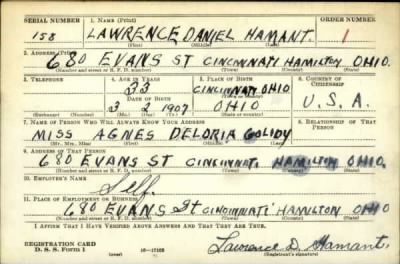 SERIAL NUMBER 1. NAME (Print) ORDER NUMBER
158 LAWRENCE DANIEL HAMANT. 1
(First) (Middle) (Last)
2. ADDRESS (Print)
680 EVANS ST CINCINNATI HAMILTON OHIO.
(Number and street or R. F. D. number) (Town) (County) (State)
3. TELEPHONE 4. AGE IN YEARS 5. PLACE OF BIRTH 6. COUNTRY OF CITIZENSHIP
33 CINCINNATI OHIO
DATE OF BIRTH (Town or county)
3 2 1907 OHIO U.S.A.
(Exchange) (Number) (Mo.) (Day) (Yr.) (State or country)
7. NAME OF PERSON WHO WILL ALWAYS KNOW YOUR ADDRESS 8. RELATIONSHIP OF THAT PERSON
MISS AGNES DELORIA
(Mr., Mrs., Miss) (First) (Middle) (Last)
9. ADDRESS OF THAT PERSON
680 EVANS ST CINCINNATI HAMILTON OHIO.
(Number and street or R. F. D. number) (Town) (County) (State)
10. EMPLOYER'S NAME
Self.
11. PLACE OF EMPLOYMENT OR BUSINESS
680 EVANS St CINCINNATI HAMILTON OHIO
(Number and street or R. F. D. number) (Town) (County) (State)
I AFFIRM THAT I HAVE VERIFIED ABOVE ANSWERS AND THAT THEY ARE TRUE.
REGISTRATION CARD
D. S. S. Form 1 Lawrence D. Hamant.
(Registrant's signature)